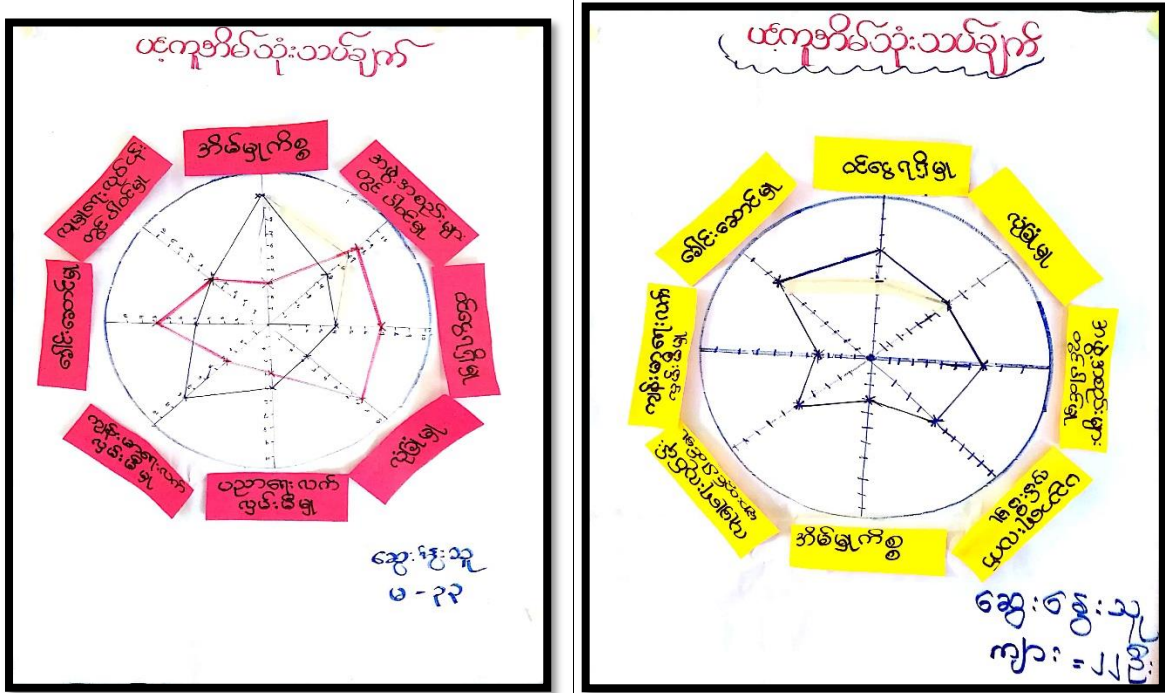 ပင့်ကူအိမ်သုံးသပ်ချက်
အိမ်မှုကိစ္စ
အဖွဲ့အစည်းများ
တွင် ပါဝင်မှု
ဝင်ငွေရရှိမှု
လုံခြုံမှု
ပညာရေးလက်
လှမ်းမီမှု
ကျန်းမာရေးလက်
လှမ်းမီမှု
ခေါင်းဆောင်မှု
လူမှုရေးလုပ်ငန်း
တွင် ပါဝင်မှု
ဆွေးနွေးသူ
မ - ၃၃
ပင့်ကူအိမ်သုံးသပ်ချက်
ဝင်ငွေရရှိမှု
လုံခြုံမှု
အဖွဲ့အစည်းများ
တွင်ပါဝင်မှု
ပညာရေးလက်
လှမ်းမီမှု
အိမ်မှုကိစ္စ
လူမှုရေးလုပ်ငန်း
များတွင်ပါဝင်မှု
ကျန်းမာရေးလက်
လှမ်းမီမှု
ခေါင်းဆောင်မှု
ဆွေးနွေးသူ
ကျား = ၂၂ ဦး